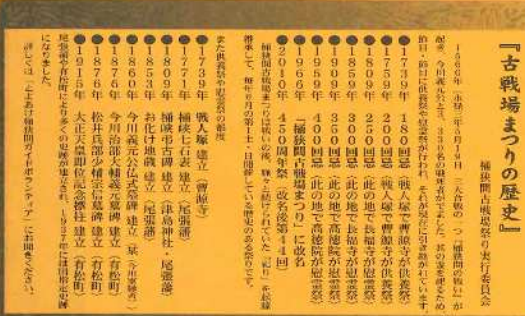 『古戦場まつりの歴史』
桶狭間古戦場祭り実行委員会
1560年（永禄三年5月19日）三大奇襲の一つ『桶狭間の戦い』が
起き、今川義元公と、3500名の戦死者がでました。其の霊を慰むため、
節目・節目に供養祭や慰霊祭が行われ、それが現在に引き継がれています。
●1739年 180回忌（戦人塚で曹源寺が供養祭）
●1759年 200回忌（戦人塚で曹源寺が供養祭）
●1809年 250回忌（此の地で長福寺が慰霊祭）
●1859年 300回忌（此の地で長福寺が慰霊祭）
●1909年 350回忌（此の地で高徳院が慰霊祭）
●1959年 400回忌（此の地で高徳院が慰霊祭）
●1966年 『桶狭間古戦場まつり』に改名
●2010年 450周年祭（改名後第44回）
桶狭間古戦場まつりは戦いの後、綿々と続けられていた「祀り」を伝統
継承して、毎年6月の第1土・日開催している歴史のある祭りです。
また供養祭や慰霊祭の都度
●1739年 戦人塚 建立（曹源寺）
●1771年 桶峡七石表 建立（尾張藩）
●1809年 桶峡弔古碑 建立（津島神社・尾張藩）
●1853年 お化け地蔵 建立（尾張藩）
●1860年 今川義元公仏式墓碑 建立
●1876年 今川治部大輔義元墓碑 建立（有松町）
●1876年 松井兵部少輔宗信墓碑 建立（有松町）
●1915年 大正天皇即位記念標柱 建立（有松町）
尾張藩や有松町により多くの史跡が建立され、1937年には国指定史跡
になりました。
詳しくは「とよあけ桶狭間ガイドボランティア」にお聞きください。